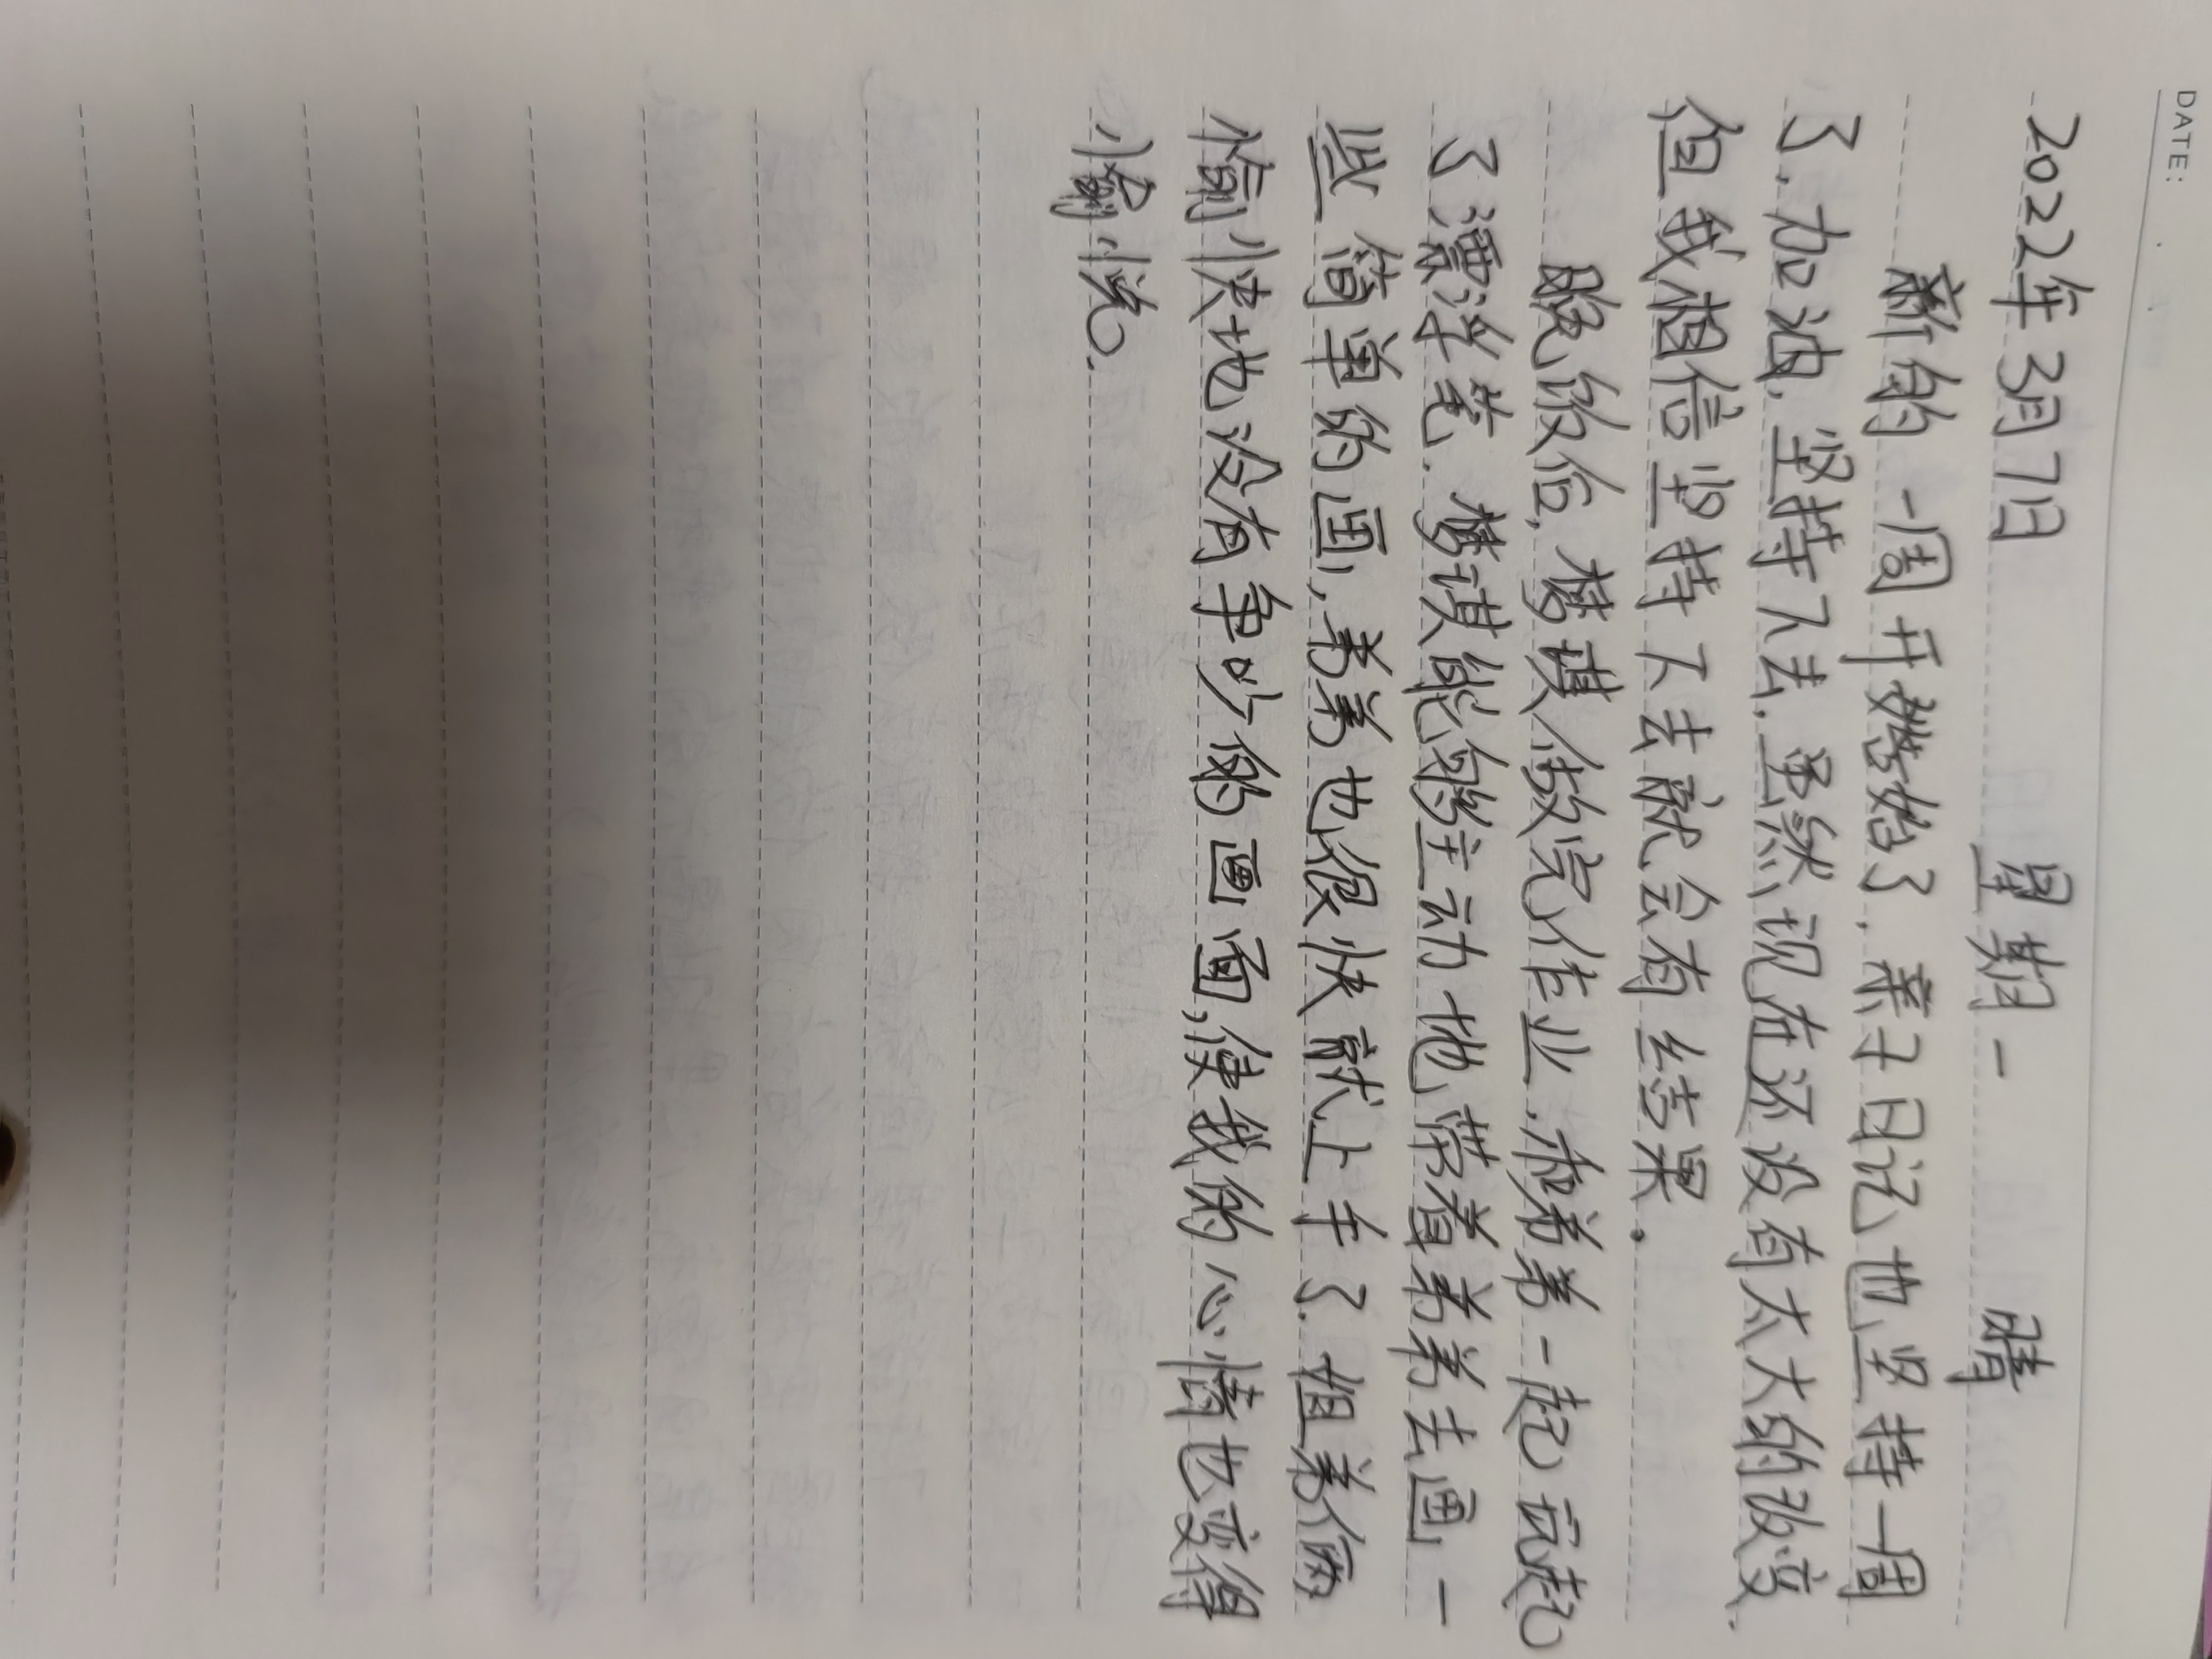 DATE:
2022年3月7日 星期一 晴
新的一周开始了.亲子日记也坚持一周
了.加油.坚持下去.虽然现在还没有太大的改变.
但我相信坚持下去就会有结果.
晚饭后,梦琪做完作业.和弟弟一起玩起
了漂浮笔.梦琪能够主动地带着弟弟去画一
些简单的画,弟弟也很快就上手了.姐弟俩
愉快地没有争吵的画面,使我的心情也变得
愉悦。